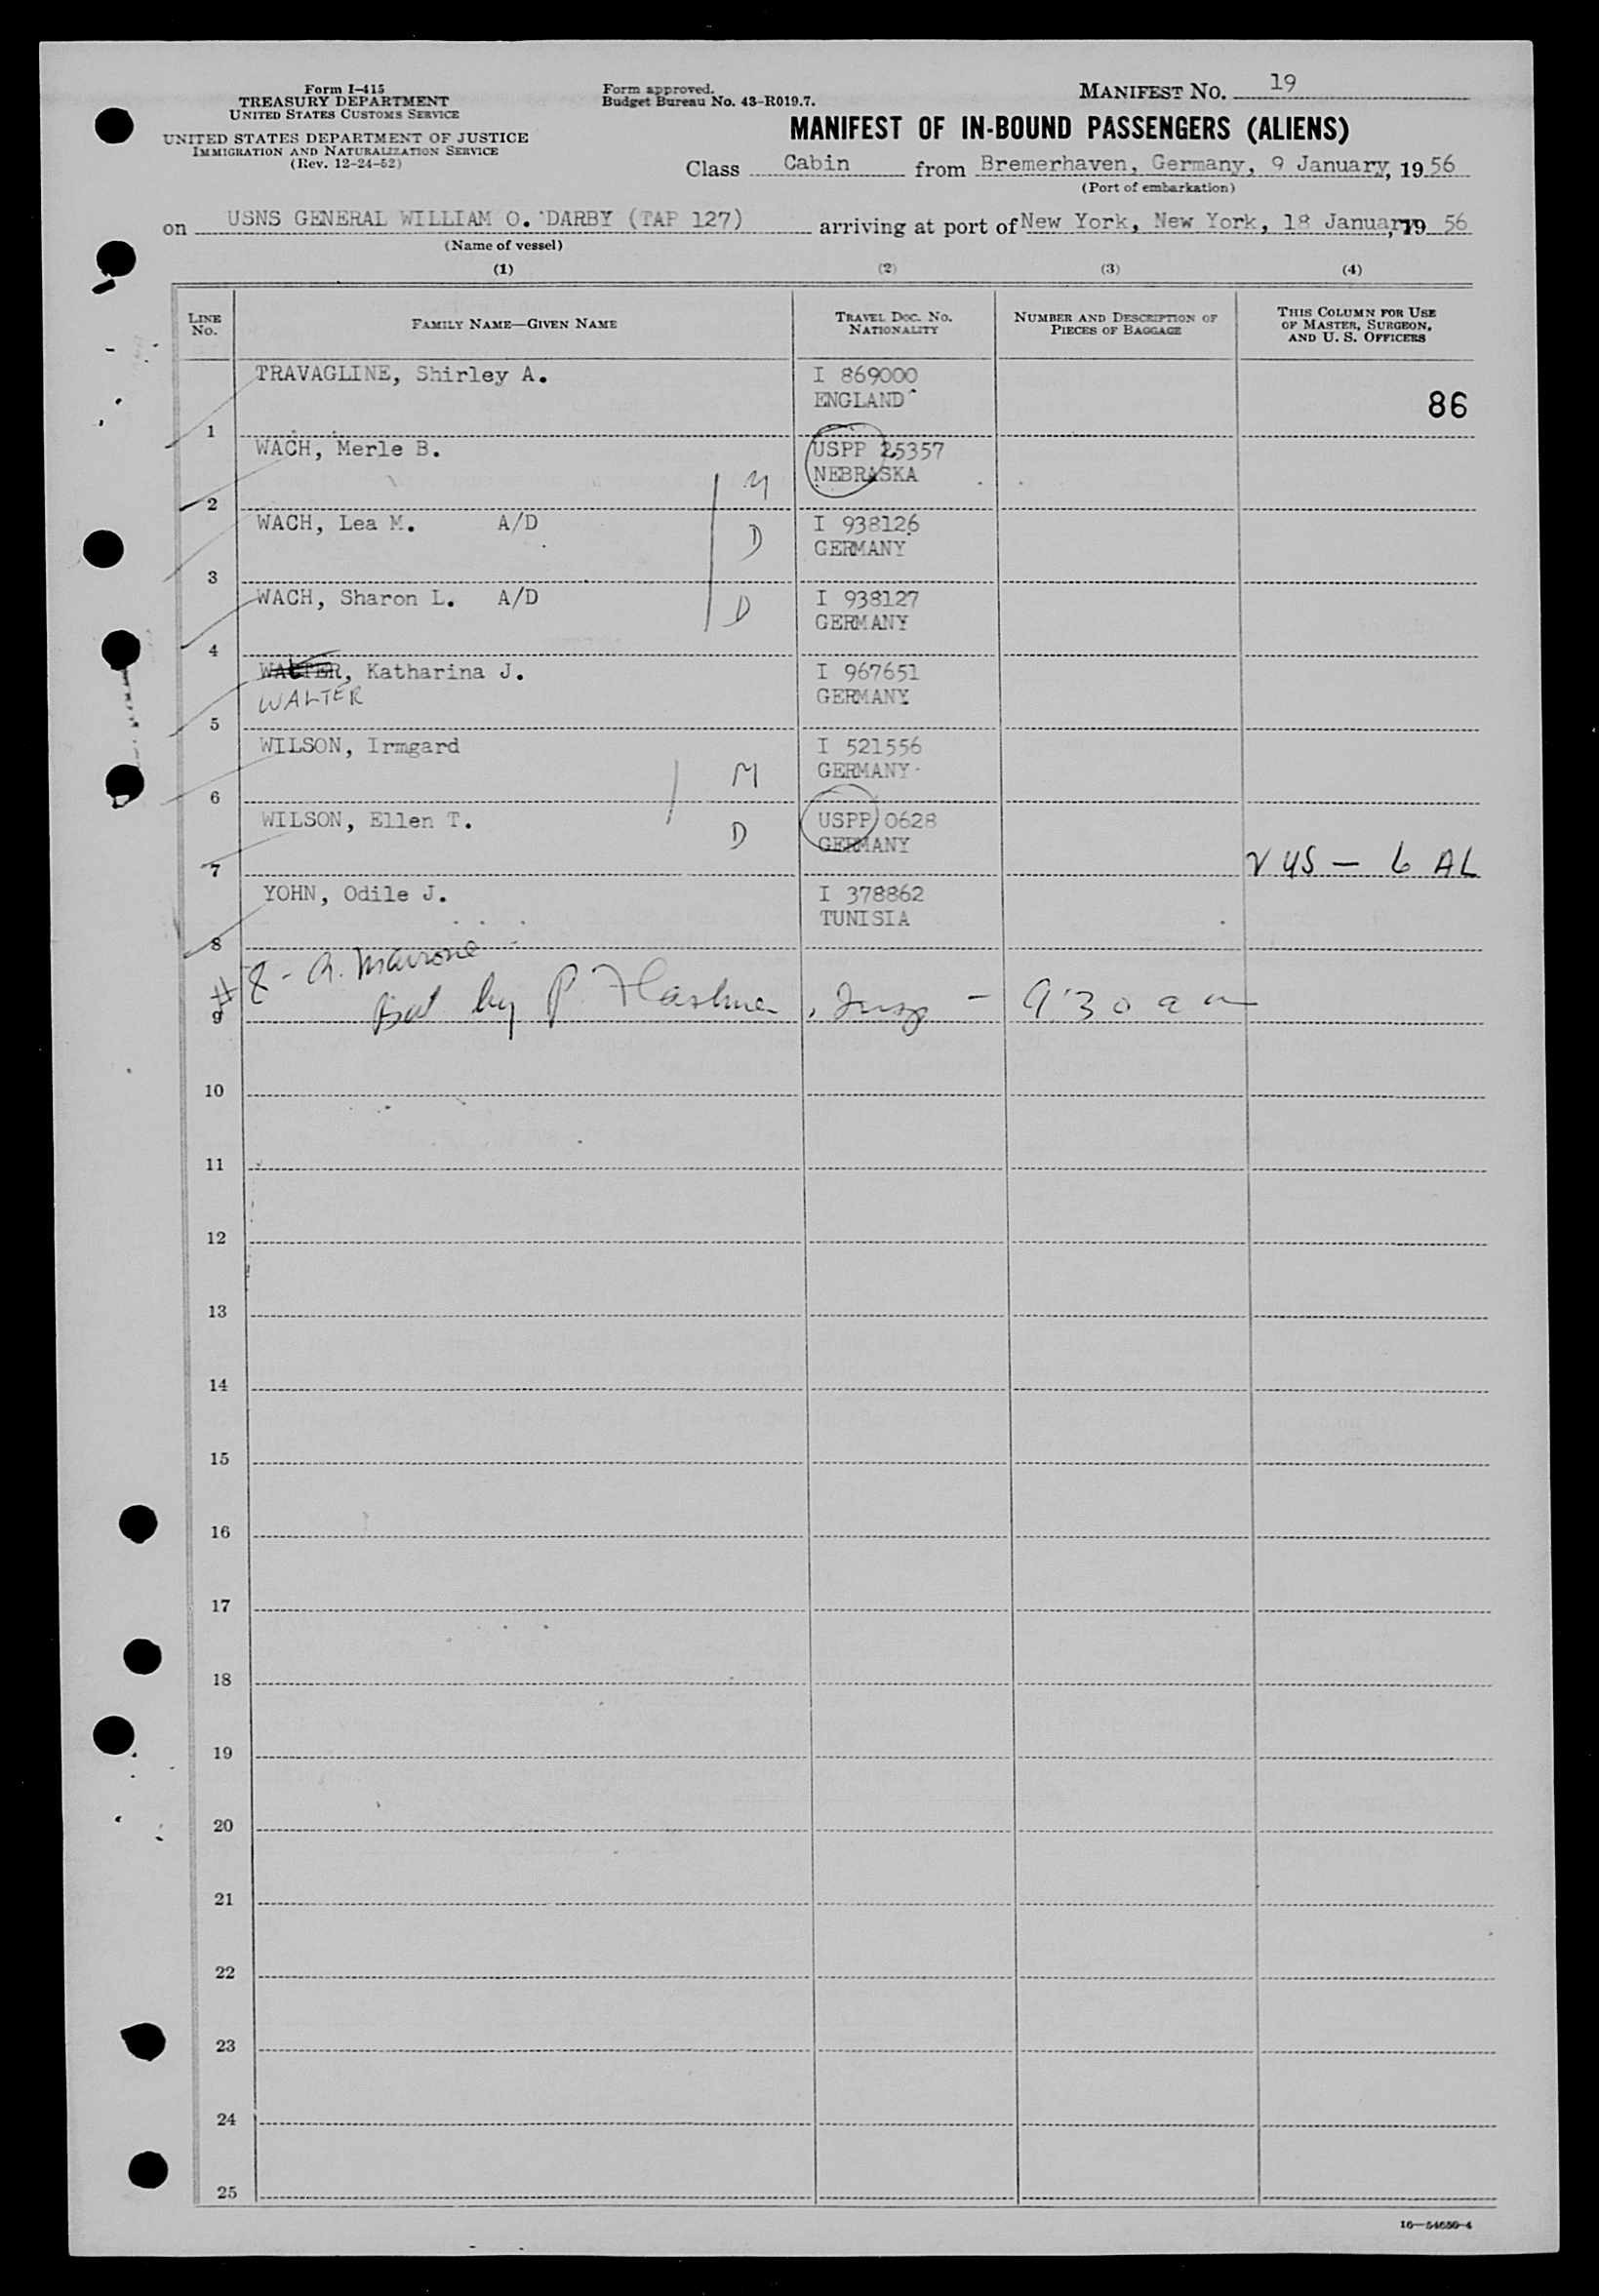 Form I-415
TREASURY DEPARTMENT
UNITED STATES CUSTOMS SERVICE
UNITED STATES DEPARTMENT OF JUSTICE
IMMIGRATION AND NATURALIZATION SERVICE
(Rev. 12-24-52)
Form approved.
Budget Bureau No. 43-R019.7.
MANIFEST NO. 19
MANIFEST OF IN-BOUND PASSENGERS (ALIENS)
Class Cabin from Bremerhaven, Germany, 9 January, 1956
(Port of embarkation)
on USNS GENERAL WILLIAM O. DARBY (TAP 127) arriving at port of New York, New York, 18 January, 19 56
(Name of vessel)
(1) (2) (3) (4)
LINE No. FAMILY NAME—GIVEN NAME TRAVEL DOC. NO. NATIONALITY NUMBER AND DESCRIPTION OF PIECES OF BAGGAGE THIS COLUMN FOR USE OF MASTER, SURGEON, AND U. S. OFFICERS
TRAVAGLINE, Shirley A. I 869000
ENGLAND 86
1
WACH, Merle B. USPP 25357
NEBRASKA
M
2
WACH, Lea M. A/D I 938126
D GERMANY
3
WACH, Sharon L. A/D I 938127
D GERMANY
4
WALTER, Katharina J. I 967651
WALTER GERMANY
5
WILSON, Irmgard I 521556
M GERMANY
6
WILSON, Ellen T. USPP 0628
D GERMANY
7 2 US — 6 AL
YOHN, Odile J. I 378862
TUNISIA
8
#8 - A.
by P. , Insp - 9:30 am
9
10
11
12
13
14
15
16
17
18
19
20
21
22
23
24
25
16—54650-4